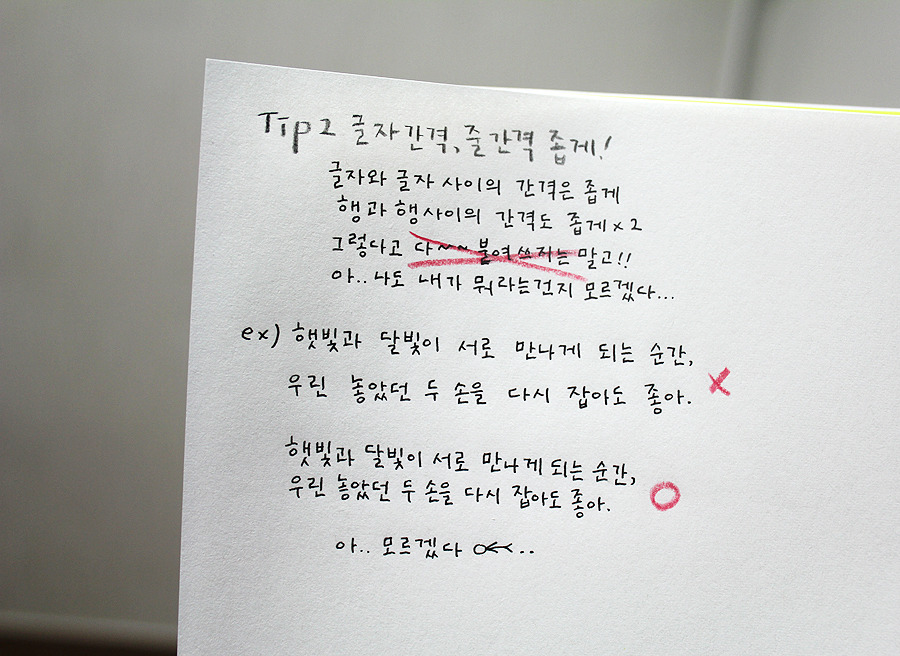 Tip 2 글자간격, 줄간격 좁게!
글자와 글자 사이의 간격은 좁게
행과 행사이의 간격도 좁게 x 2
그렇다고 다~~ 붙여쓰지는 말고!!
아.. 나도 내가 뭐라는건지 모르겠다...
ex) 햇빛과 달빛이 서로 만나게 되는 순간,
우린 놓았던 두 손을 다시 잡아도 좋아.
햇빛과 달빛이 서로 만나게 되는 순간,
우린 놓았던 두 손을 다시 잡아도 좋아.
아.. 모르겠다 ..